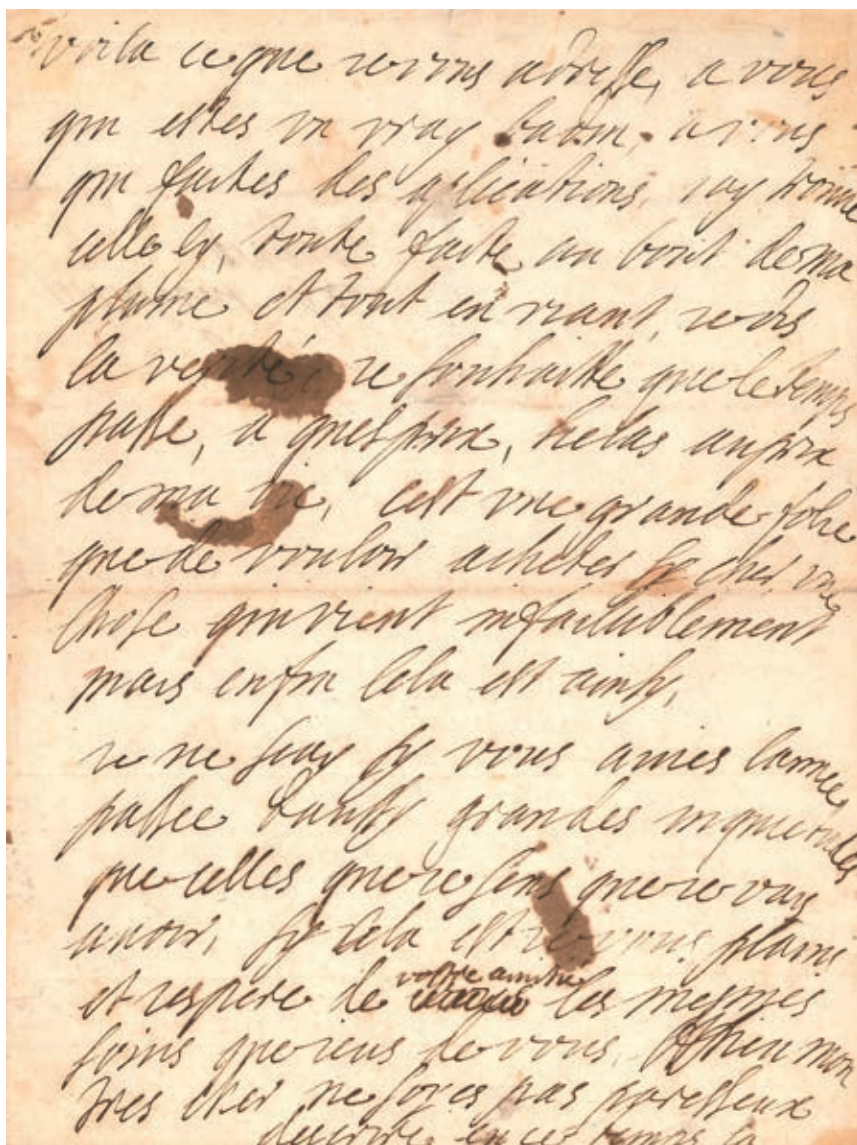 voila ce que ie vous adresse, a vous
qui estes vn vray badin, a vous
qui faites des aplications, iay trouué
celle cy, toute faite au bout de ma
plume et tout en riant, ie dis
la verité ie souhaitte que le temps
passe, a quel prix, helas au prix
de ma vie, cest vne grande folie
que de vouloir acheter sy cher vne
chose qui vient infailliblement
mais enfin cela est ainsy,
ie ne scay sy vous auies lannee
passee daussy grandes inquietudes
que celles que ie sens que ie vay
auoir, sy cela est ie vous plains
et iespere de vostre amitie les mesmes
soins que ieus de vous, Adieu mon
tres cher ne soyes pas paresseux
descrire en ce temps